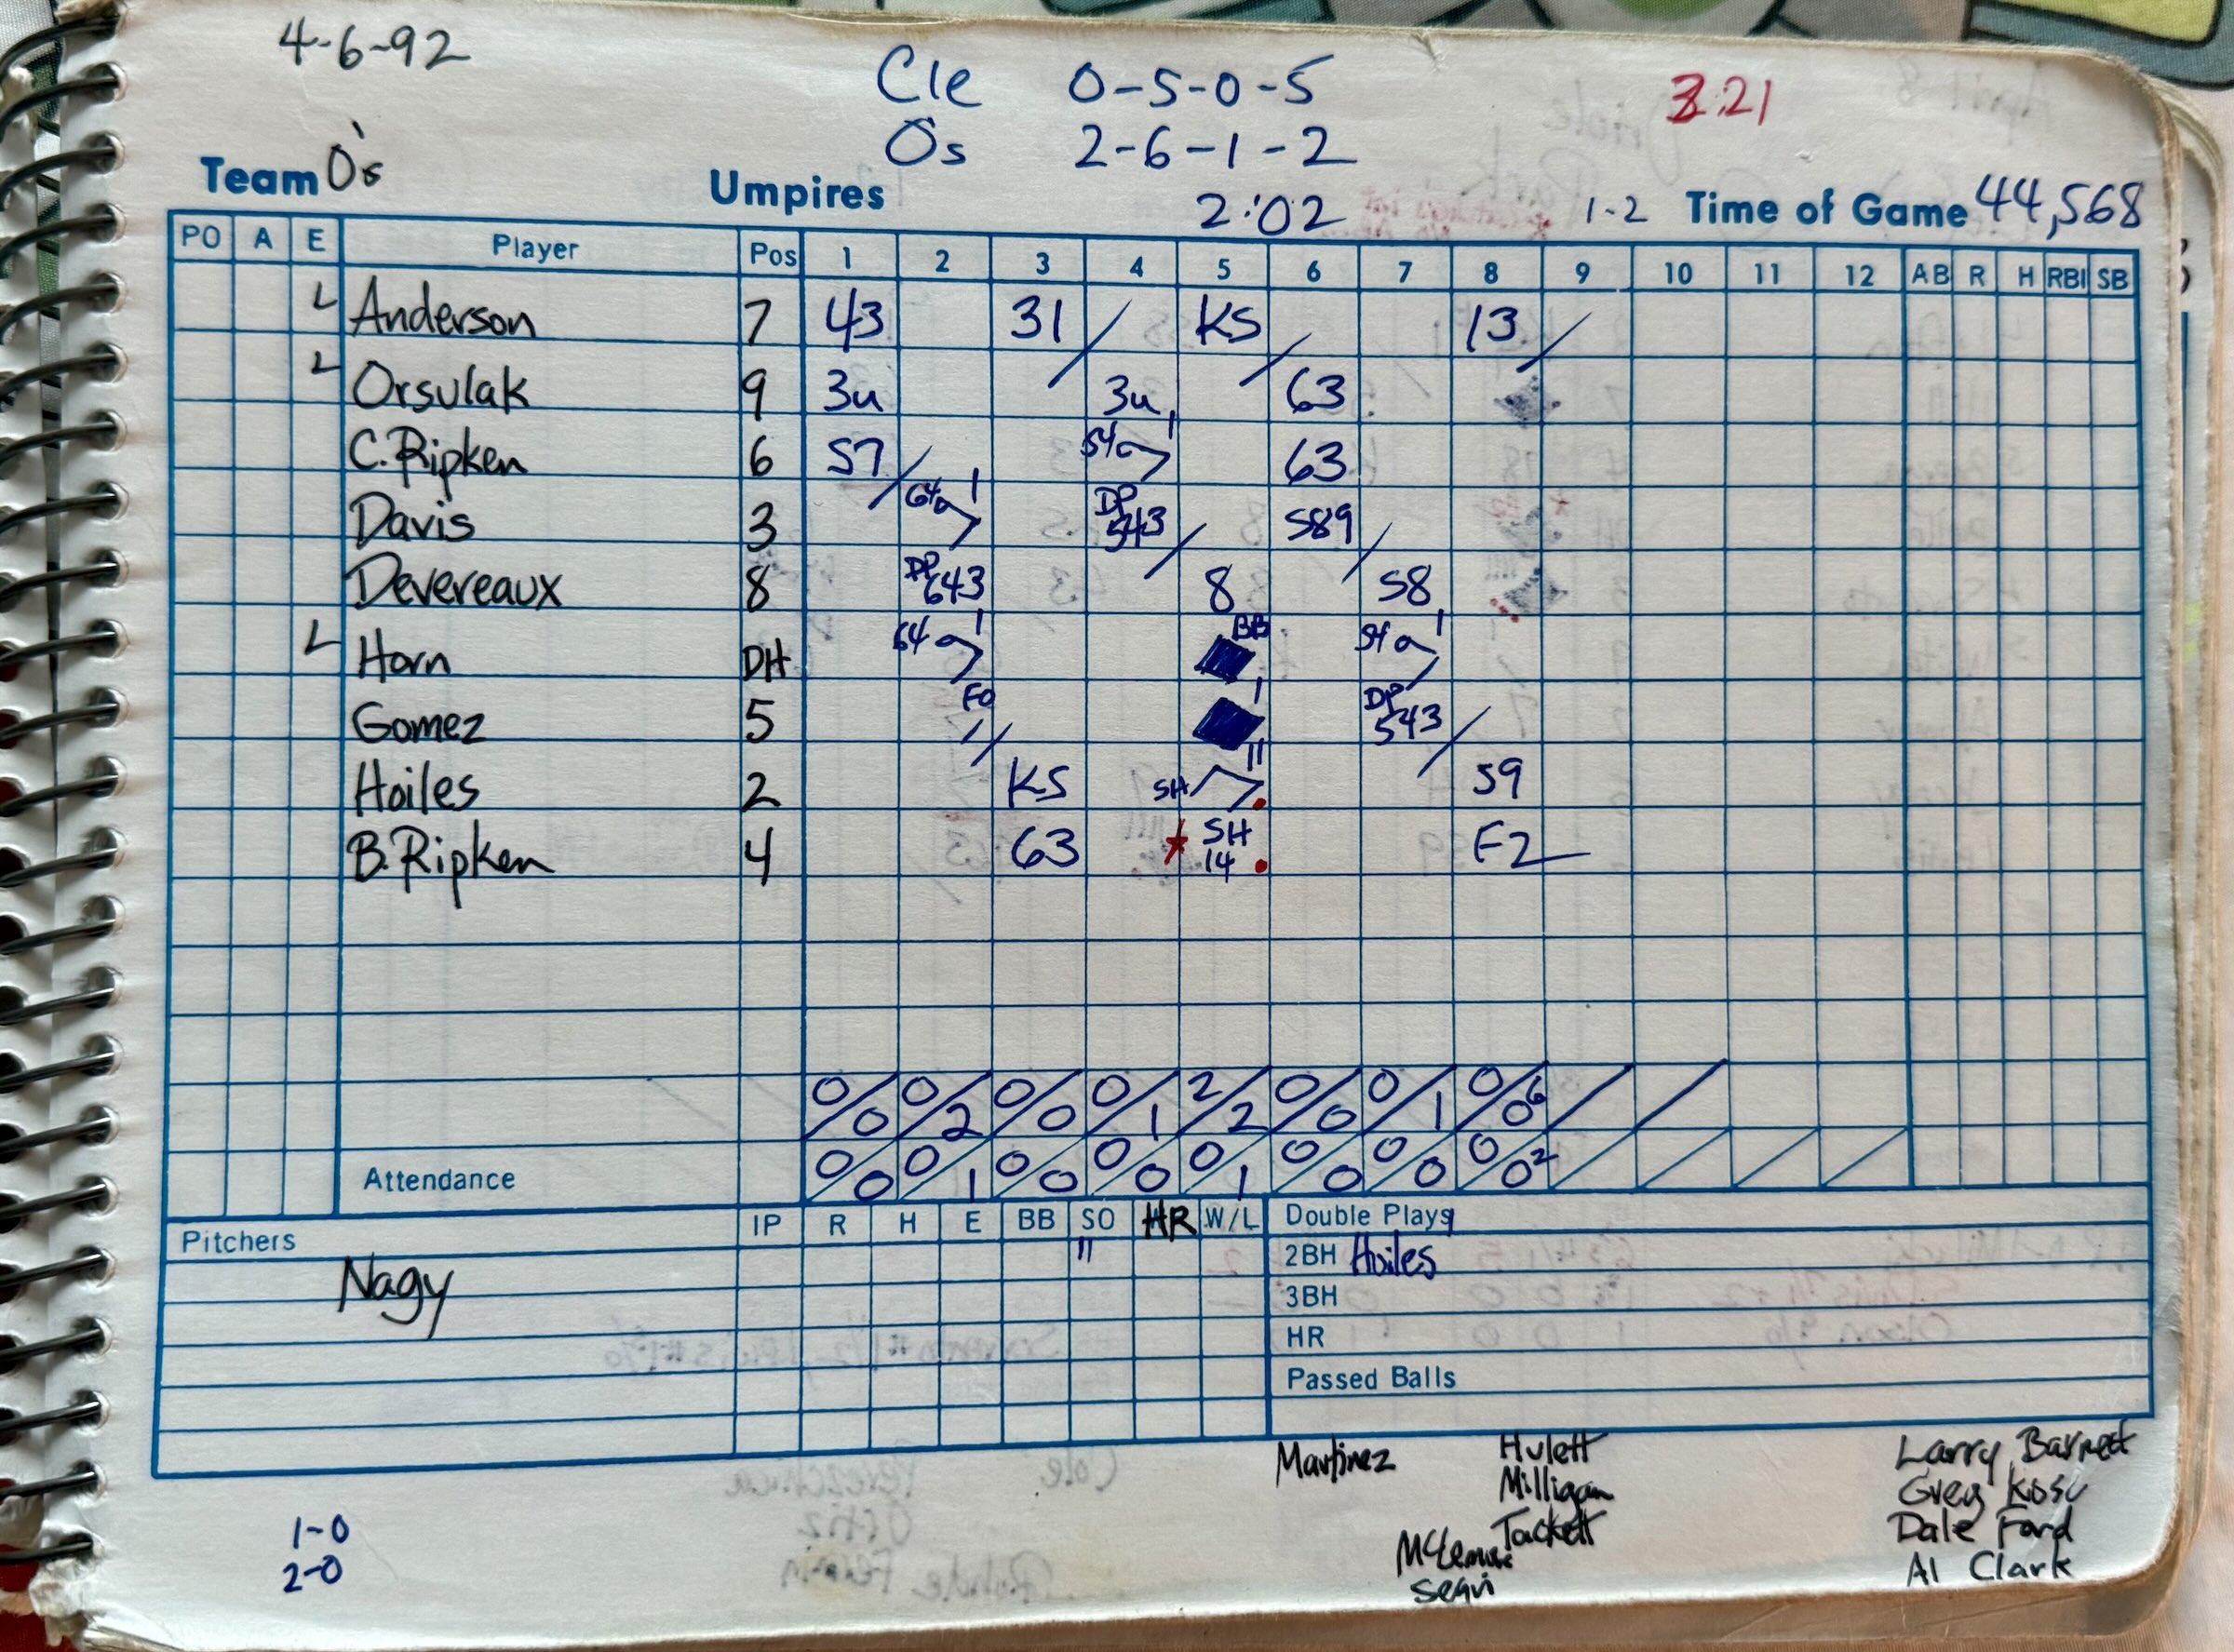 4-6-92
Cle 0-5-0-5
O's 2-6-1-2
3:21
Team O's Umpires 2:02 1-2 Time of Game 44,568
PO A E Player Pos 1 2 3 4 5 6 7 8 9 10 11 12 AB R H RBI SB
L Anderson 7 43 31 KS 13
L Orsulak 9 3u 3u 63
C. Ripken 6 57 54 63
Davis 3 64 DP 543 S89
Devereaux 8 DP 643 8 S8
L Horn DH 64 BB 54
Gomez 5 FO DP 543
Hoiles 2 KS SH S9
B. Ripken 4 63 SH 14 F2
0/0 0/2 0/0 0/1 2/2 0/0 0/1 0/0 6
Attendance 0/0 0/1 0/0 0/0 0/1 0/0 0/0 0/0 2
Pitchers IP R H E BB SO HR W/L Double Plays
Nagy
2BH Hoiles
3BH
HR
Passed Balls
Martinez
Hulett
Milligan
Tackett
McLemore
Segui
Larry Barnett
Greg Kosc
Dale Ford
Al Clark
1-0
2-0